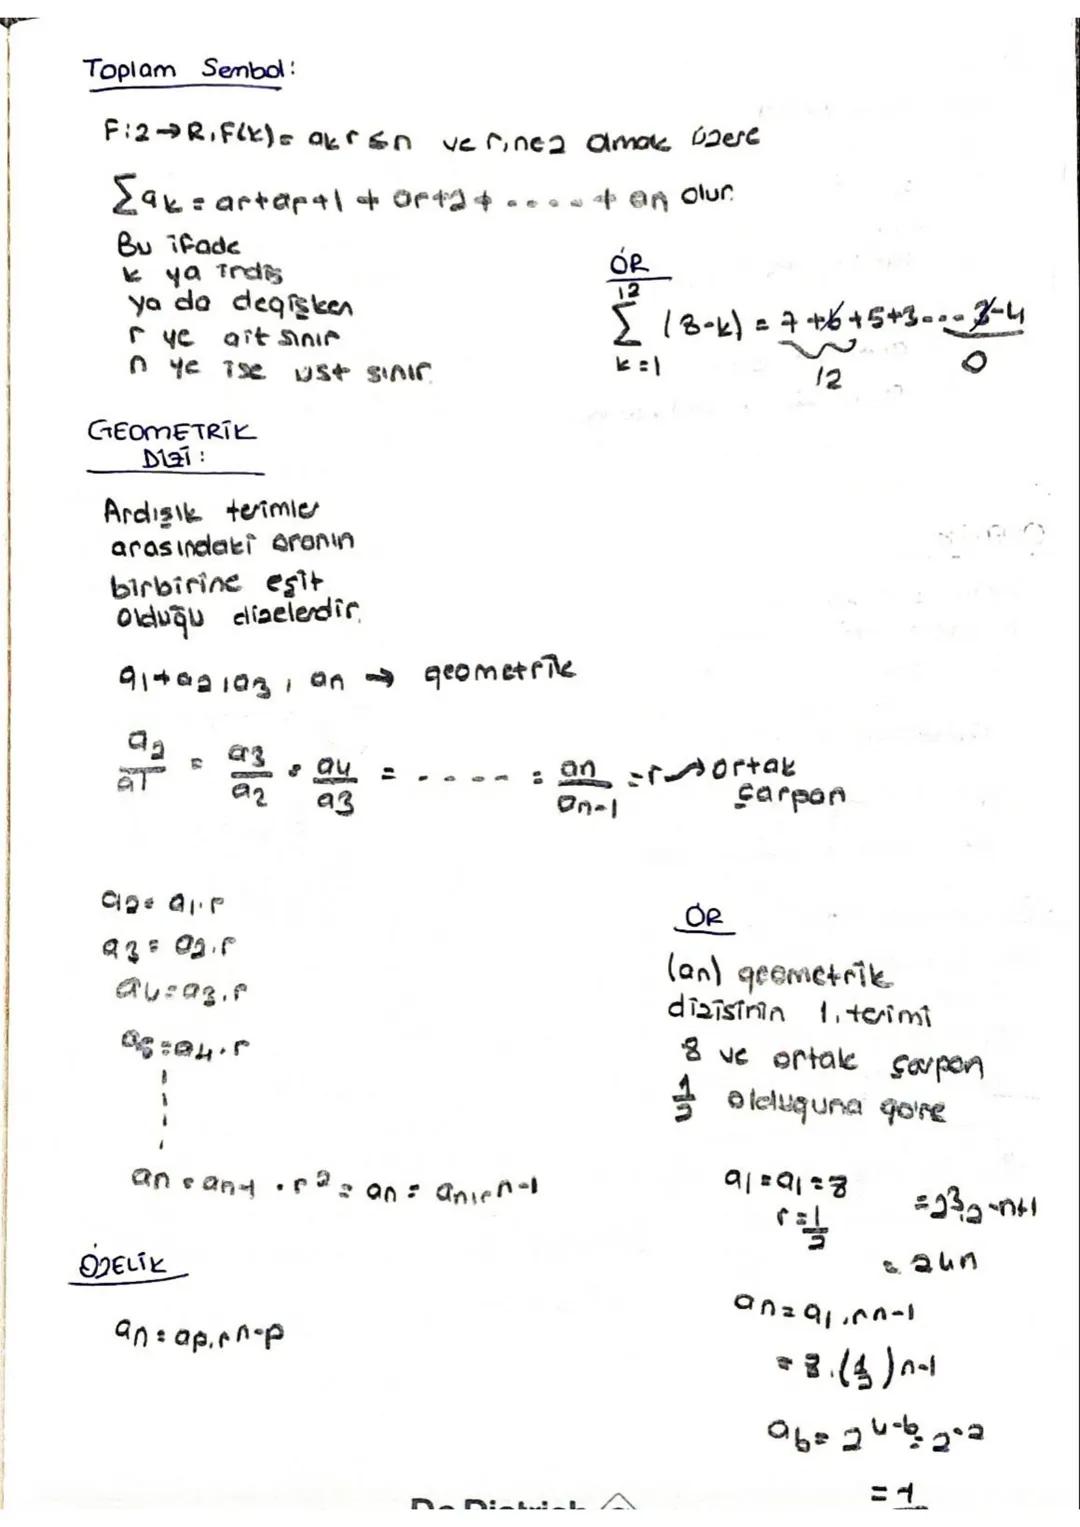 Toplam Sembol:
F:2→R, F(k)= ak r≤n ve r,n∈2 olmak üzere
∑ak = ar+ar+1 + ar+2+.....+ an olur.
Bu ifade
k ya indis
ya da degişken
r ye ait sınır
n ye ise üst sınır.
ÖR
12
∑ (8-k) = 7+6+5+3... 3-4
k=1
12
0
GEOMETRİK
DİZİ:
Ardışık terimler
arasındaki oranın
birbirine eşit
olduğu dizelerdir.
a1+a2,a3, an → geometrik
a2/a1 = a3/a2 = a4/a3 = ..... = an/an-1 =r→ortak
çarpan
a2= a1.r
a3= a2.r
a4=a3.r
a5=a4.r
an=an-1 .r2= an= an.rn-1
ÖZELİK
an=ap.rn-p
ÖR
(an) geometrik
dizisinin 1.terimi
8 ve ortak çarpan
1/2 olduguna göre
a1=a1=8
r=1/2
=23.2-n+1
=24n
an=a1.rn-1
=8.(1/2)n-1
a6=24-6=2-2
=1
De Dietrich